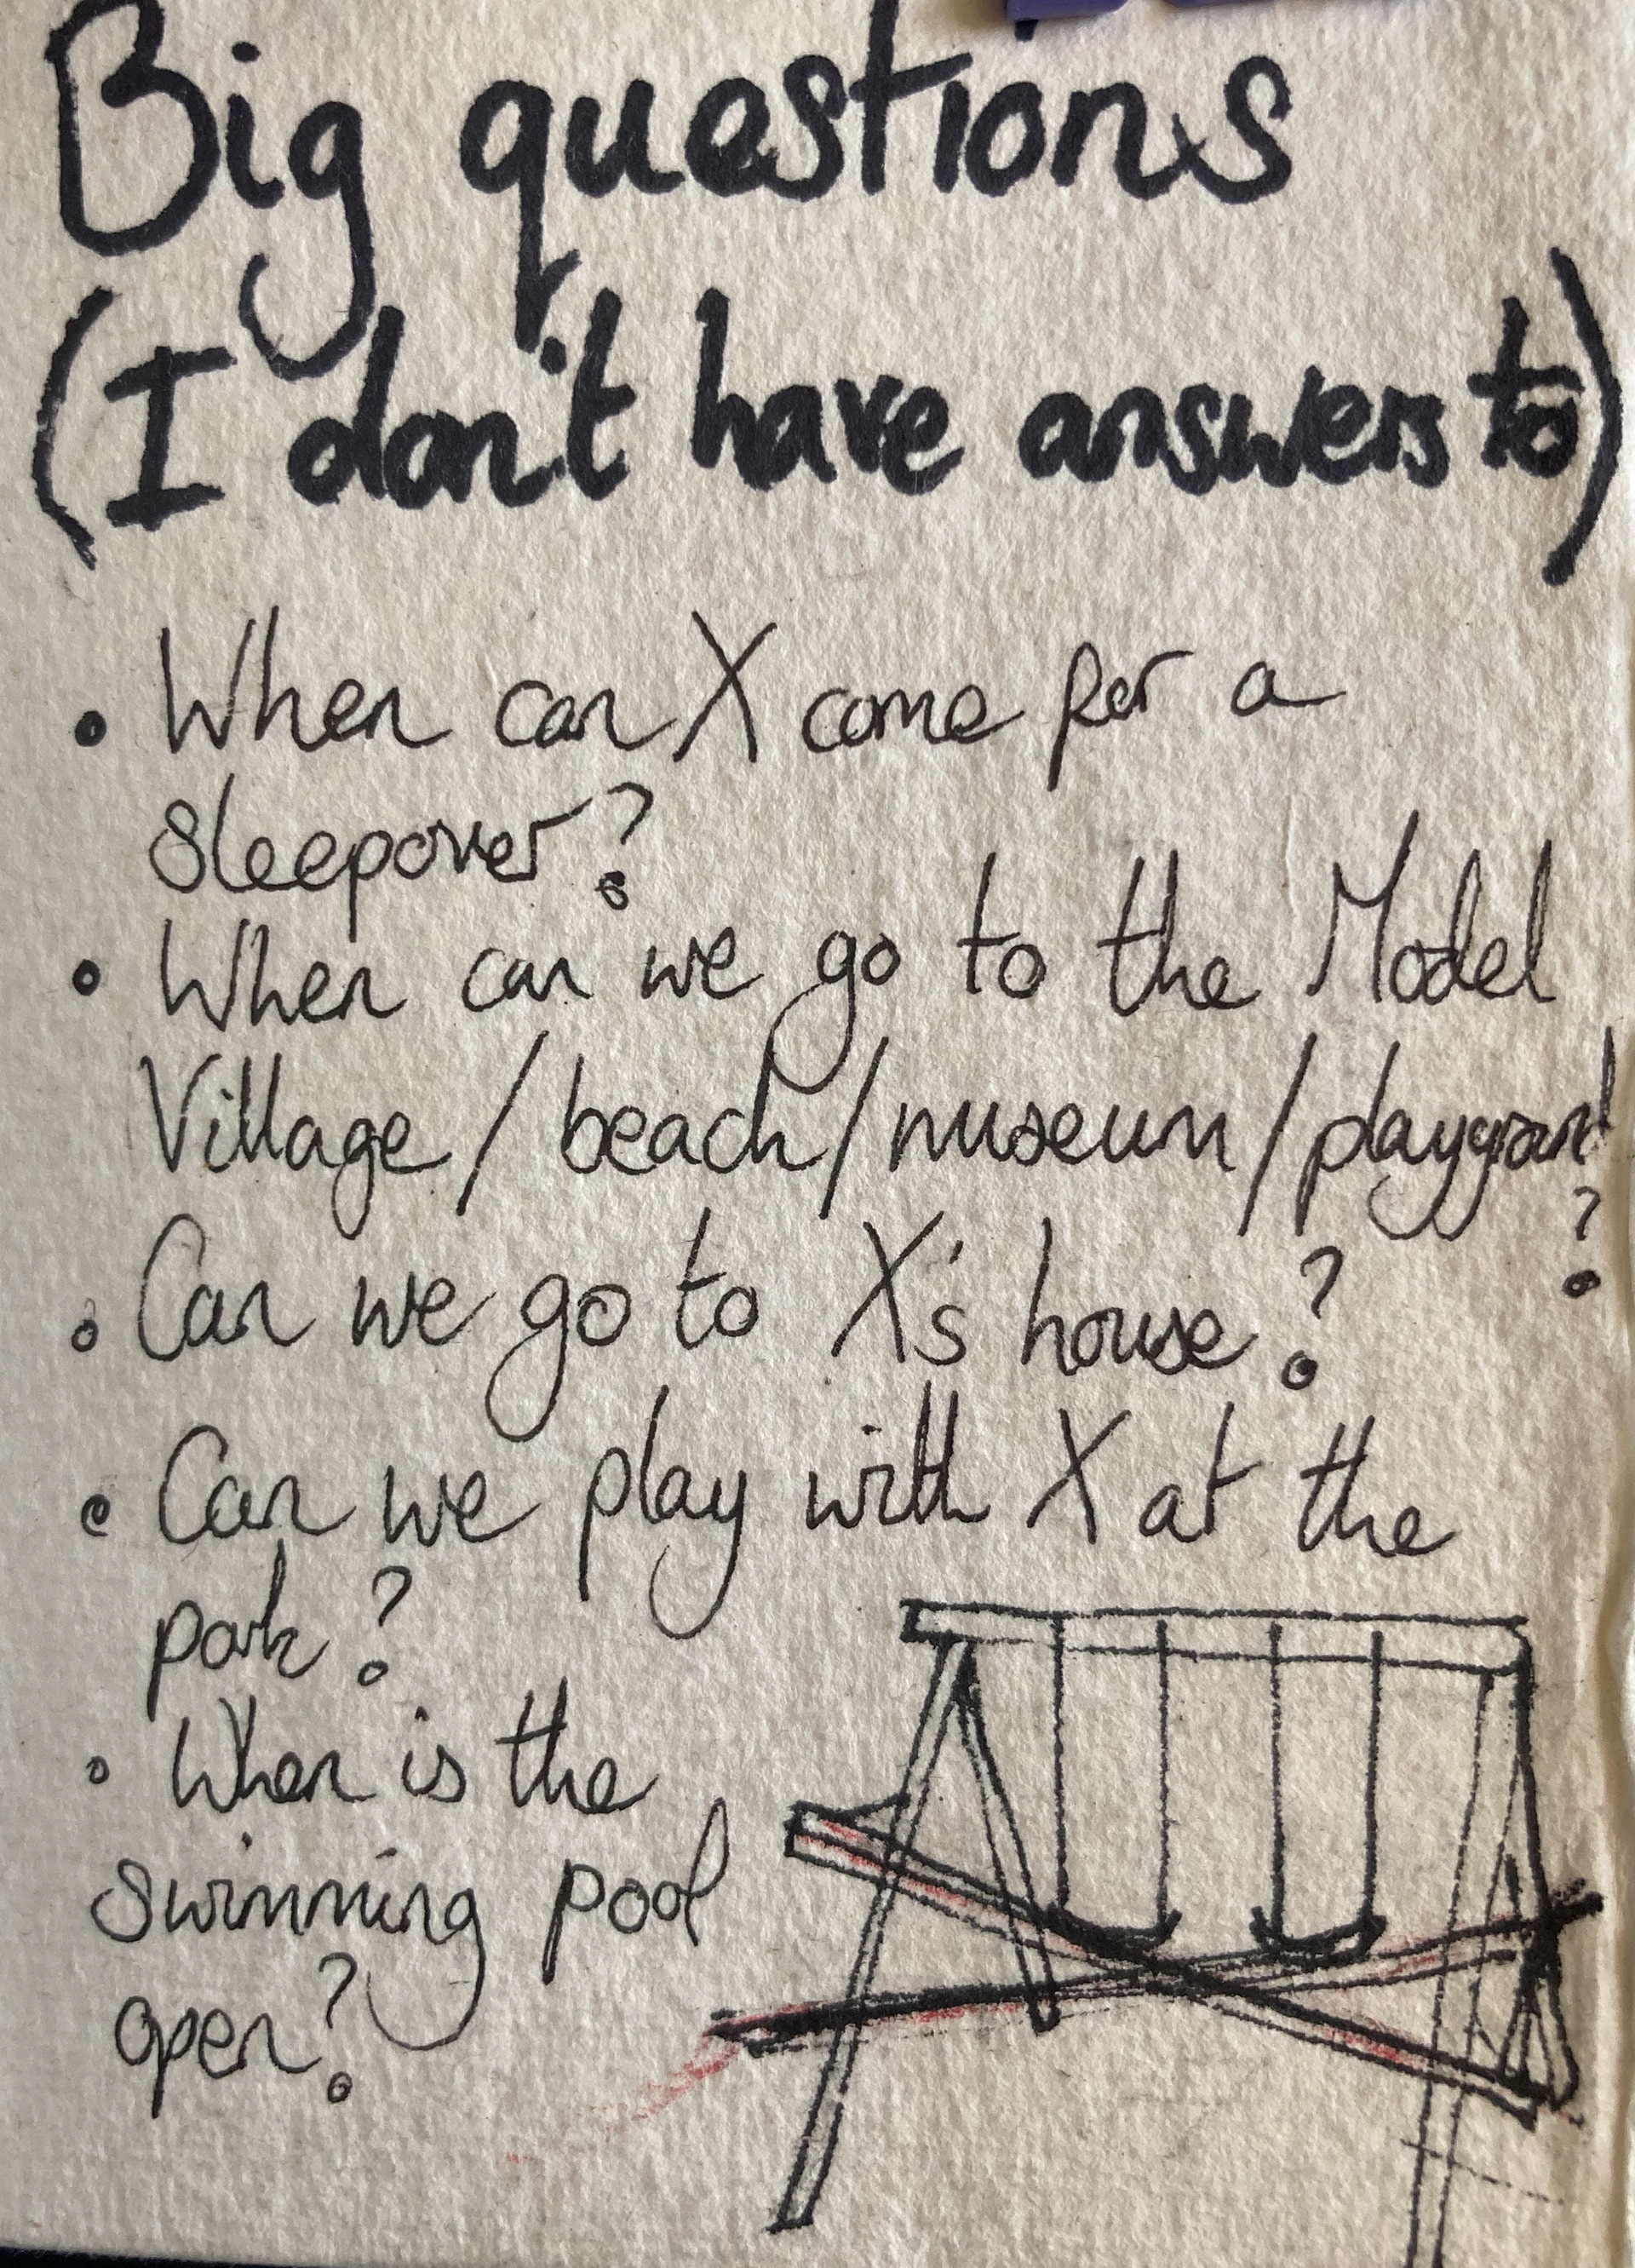 Big questions
(I don't have answers to)
• When can X come for a
sleepover?
• When can we go to the Model
Village / beach / museum / playground
?
• Can we go to X's house?
• Can we play with X at the
park?
• When is the
swimming pool
open?